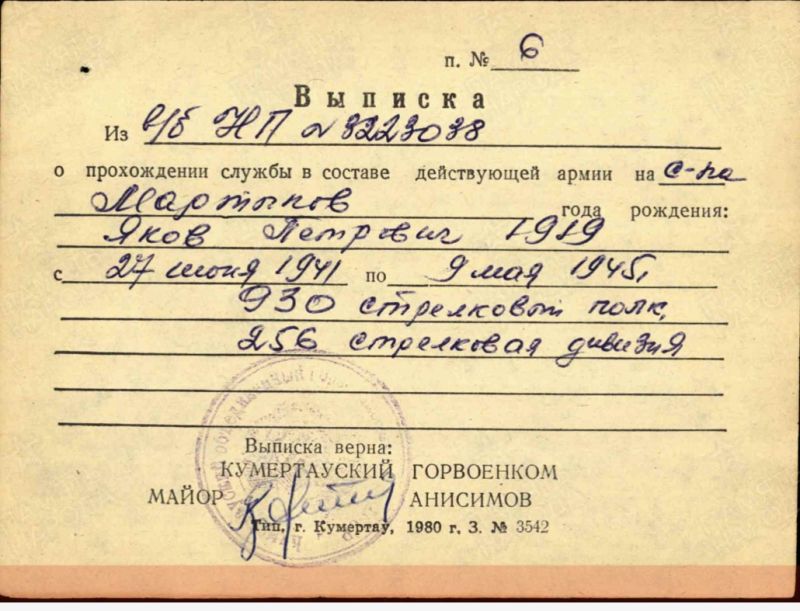 п. № 6
Выписка
Из в/б НП № 3223038
о прохождении службы в составе действующей армии на с-на
Мартынов
года рождения:
Яков Петрович 1919
с 27 июня 1941 по 9 мая 1945г
930 стрелковый полк,
256 стрелковая дивизия
Выписка верна:
КУМЕРТАУСКИЙ ГОРВОЕНКОМ
МАЙОР АНИСИМОВ
Тип. г. Кумертау, 1980 г. З. № 3542